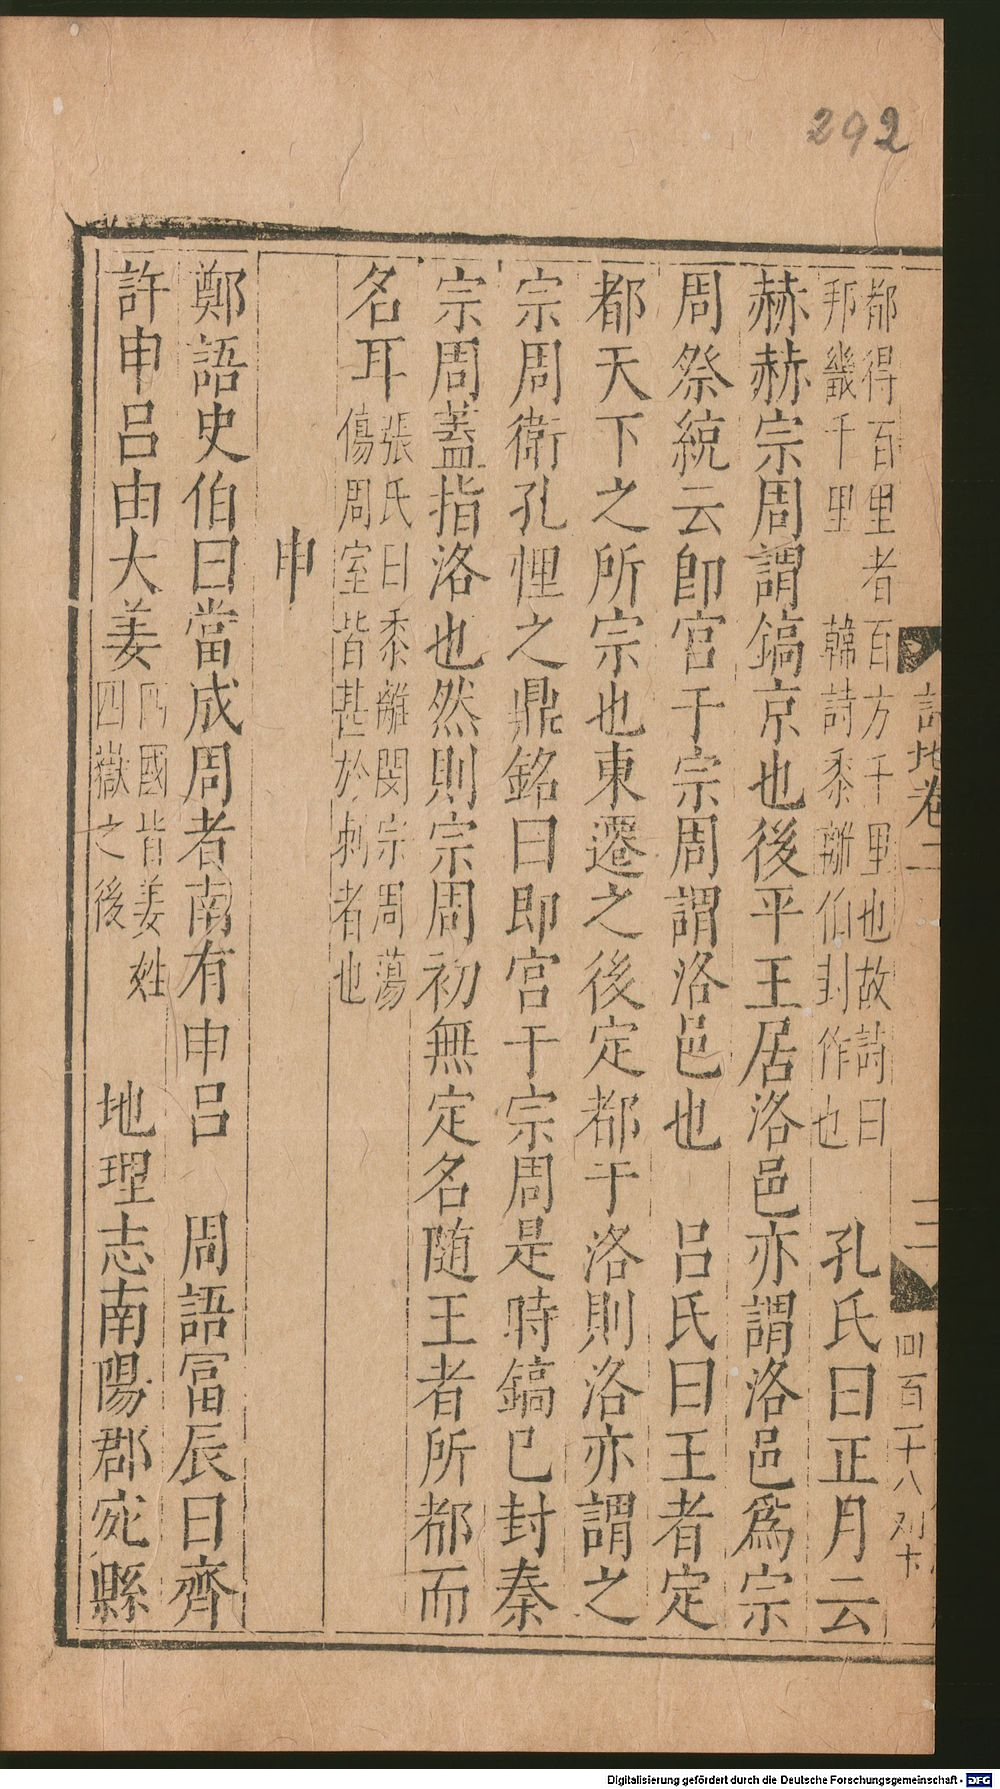 292
都得百里者百方千里也故詩曰
邦畿千里　韓詩黍離伯封作也
孔氏曰正月云
赫赫宗周謂鎬京也後平王居洛邑亦謂洛邑爲宗
周祭統云卽宮于宗周謂洛邑也　呂氏曰王者定
都天下之所宗也東遷之後定都于洛則洛亦謂之
宗周衛孔悝之鼎銘曰即宮于宗周是時鎬已封秦
宗周蓋指洛也然則宗周初無定名隨王者所都而
名耳
張氏曰黍離閔宗周蕩
傷周室皆甚於刺者也
申
鄭語史伯曰當成周者南有申呂　周語富辰曰齊
許申呂由大姜
四國皆姜姓
四嶽之後
地理志南陽郡宛縣
詩地卷二
二
四百十八
Digitalisierung gefördert durch die Deutsche Forschungsgemeinschaft - DFG